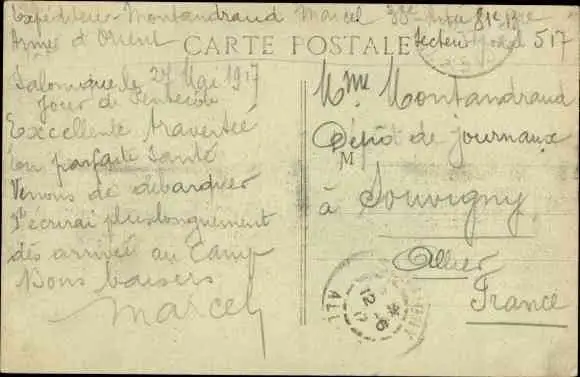 Expéditeur Montandraud Marcel 38e 81e Bie
Armée d'Orient Secteur postal 517
CARTE POSTALE
Salonique le 27 Mai 1917
Jour de Pentecôte
Excellente traversée
En parfaite santé
Venons de débarquer
T'écrirai plus longuement
dès arrivée au Camp
Bons baisers
Marcel
Mme Montandraud
Dépôt de journaux
M
à Souvigny
Allier
France